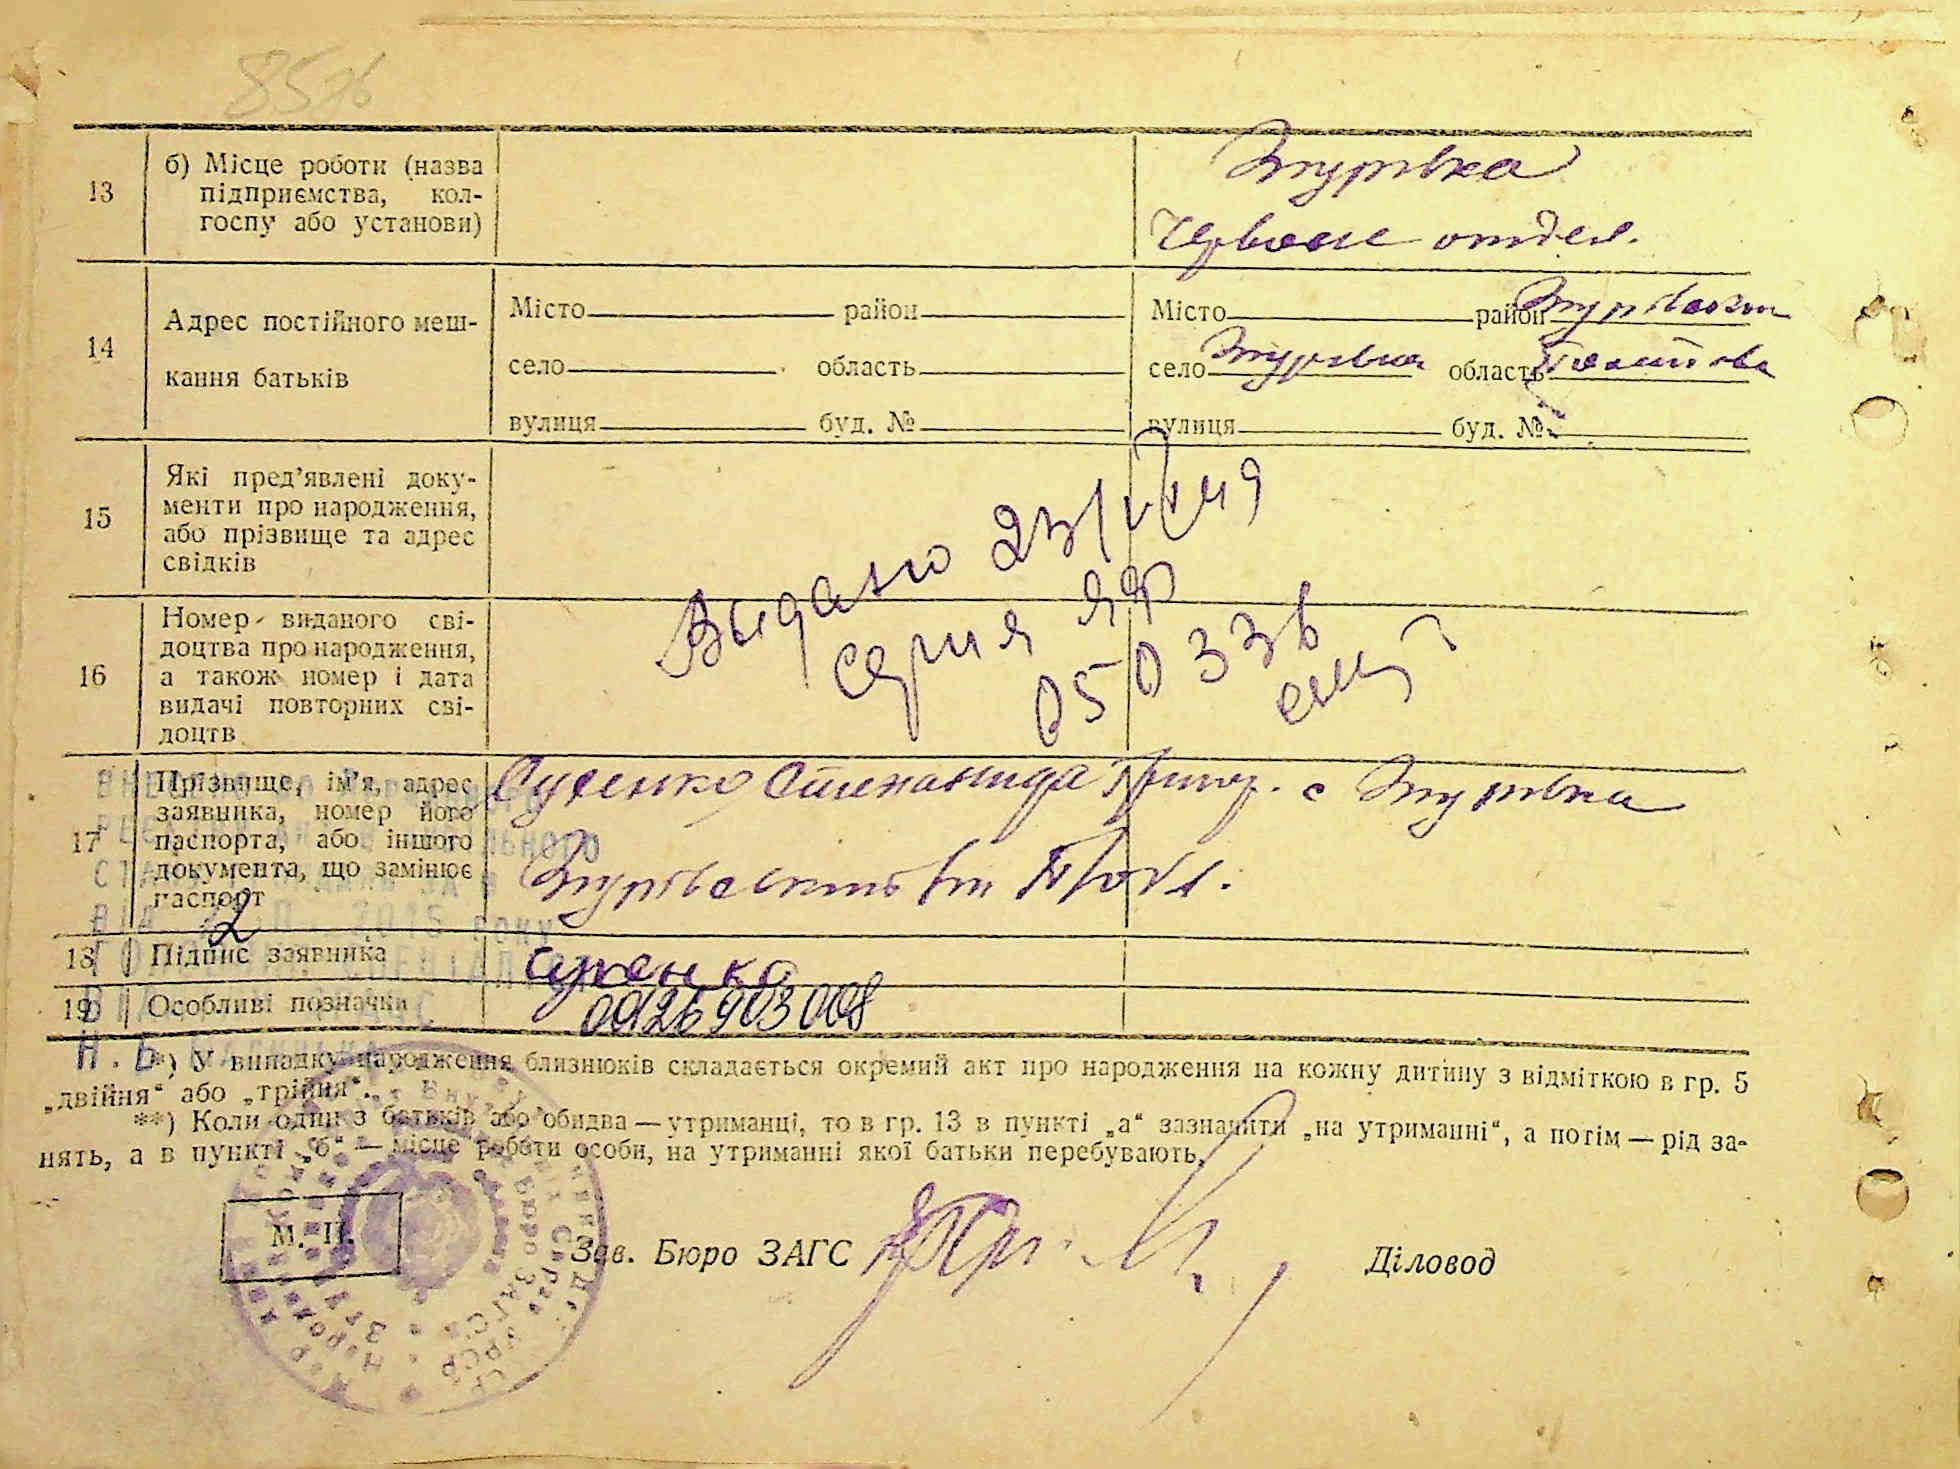 857б
13
б) Місце роботи (назва
підприємства, кол-
госпу або установи)
Згурівка
Червоне отдел.
14
Адрес постійного меш-
кання батьків
Місто район
село область
вулиця буд. №
Місто район Згурівском
село Згурівка область Полтавс
вулиця буд. №
15
Які пред'явлені доку-
менти про народження,
або прізвище та адрес
свідків
Выдано 23/
16
Номер виданого сві-
доцтва про народження,
а також номер і дата
видачі повторних сві-
доцтв
серия ЯФ
050336
17
Прізвище, ім'я, адрес
заявника, номер його
паспорта, або іншого
документа, що замінює
паспорт
Сусенко Степанида Григор. с Згурівка
Згурівского рн П/обл.
2
18
Підпис заявника
Сусенко
19
Особливі позначки
00126903008
*) У випадку народження близнюків складається окремий акт про народження на кожну дитину з відміткою в гр. 5
„двійня“ або „трійня“.
**) Коли один з батьків або обидва — утриманці, то в гр. 13 в пункті „а“ зазначити „на утриманні“, а потім — рід за-
нять, а в пункті „б“ — місце роботи особи, на утриманні якої батьки перебувають.
М. П.
Зав. Бюро ЗАГС
Діловод